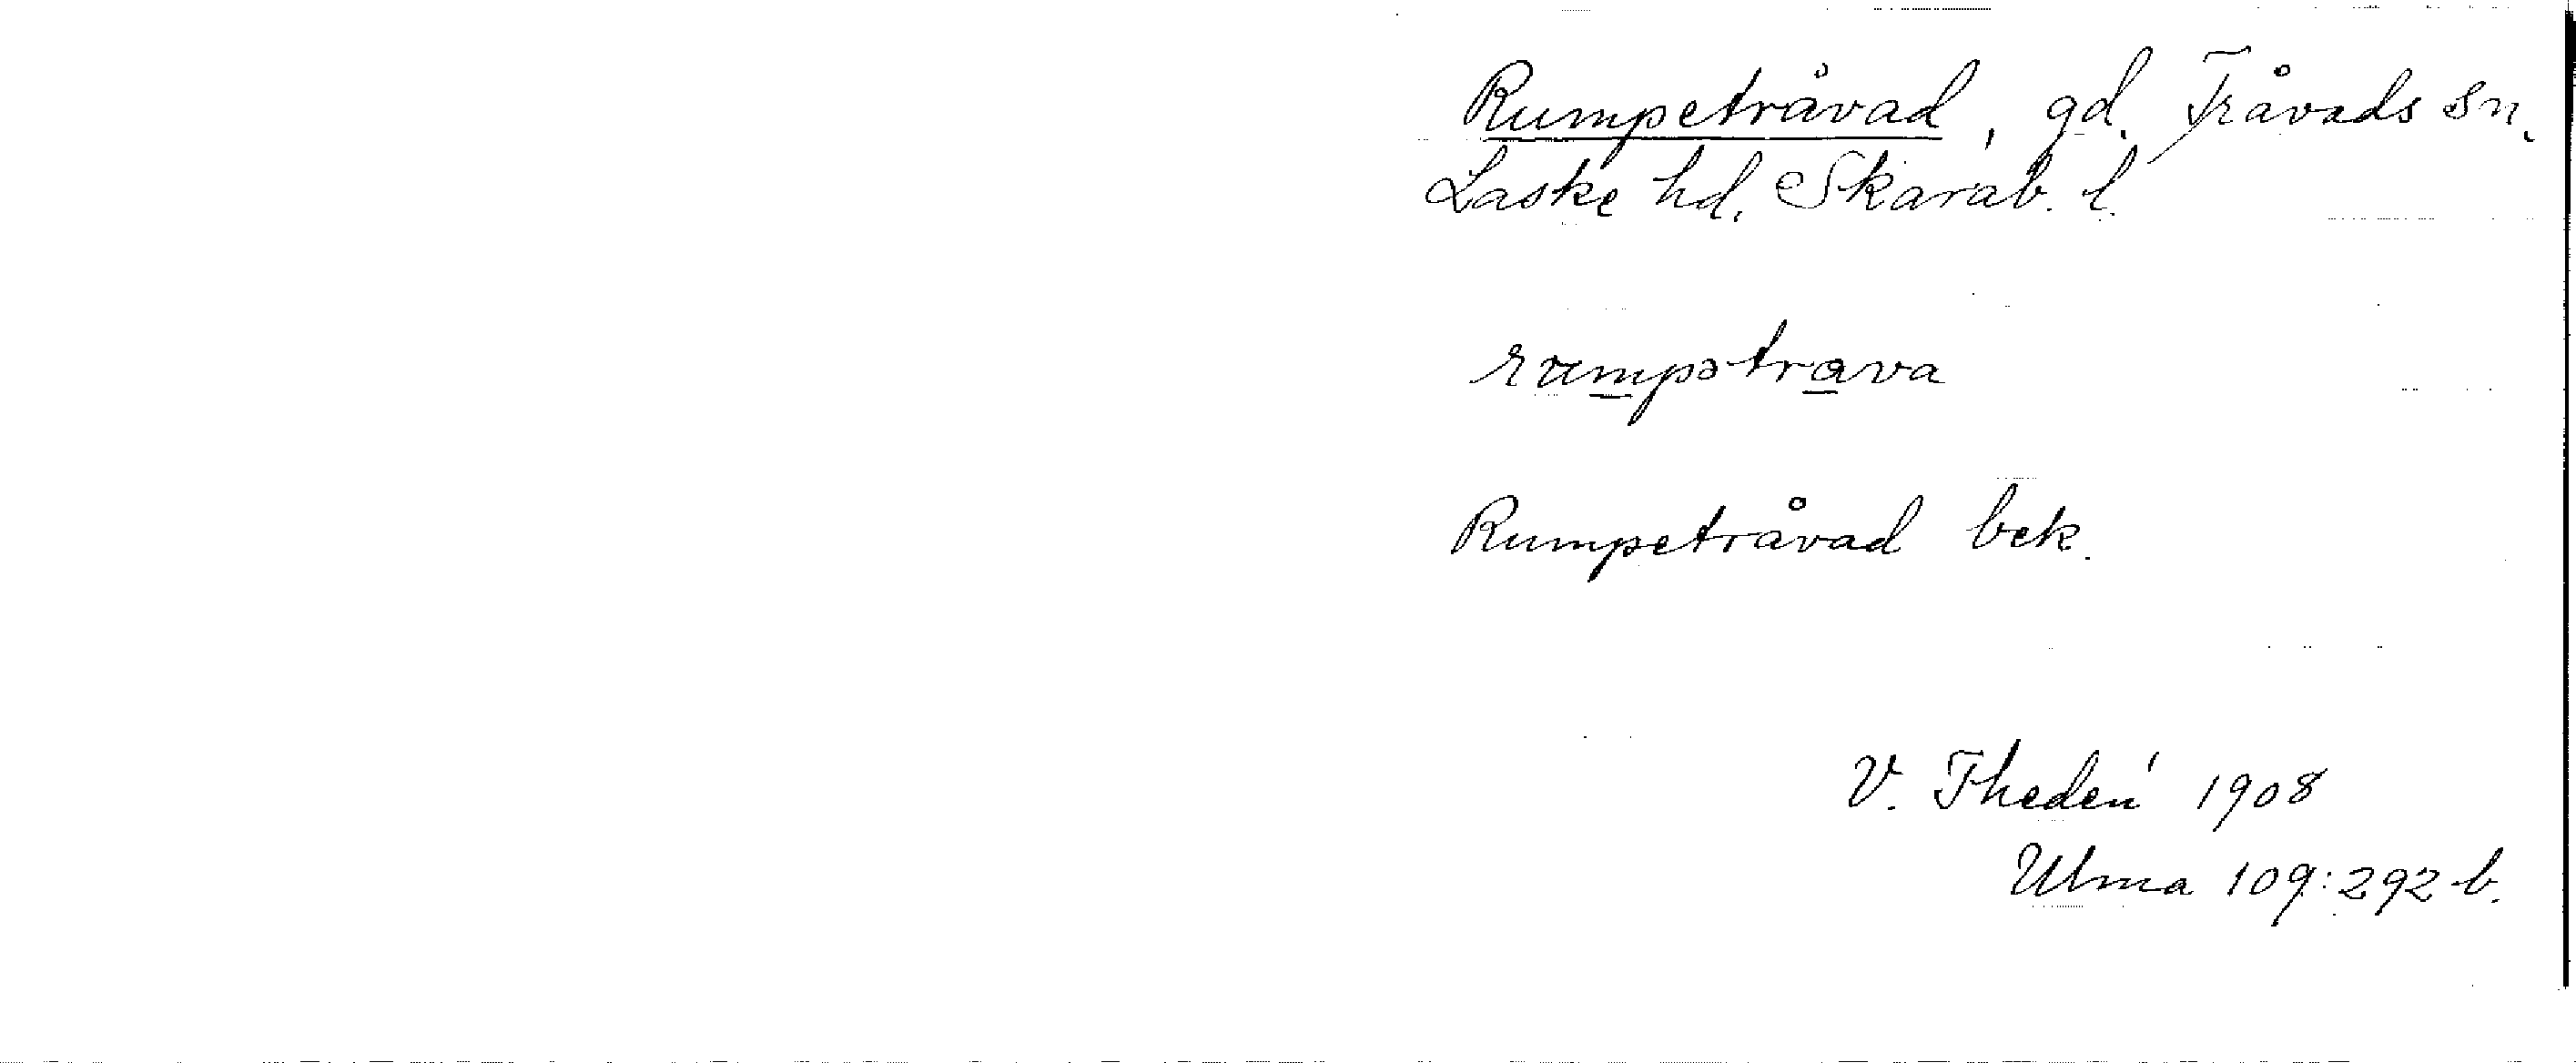 Rumpetråvad, gd. Tråvads sn.
Laske hd. Skarab. l.
rumpətrava
Rumpetråvad bek.
V. Thedén 1908
Ulma 109:292 b.